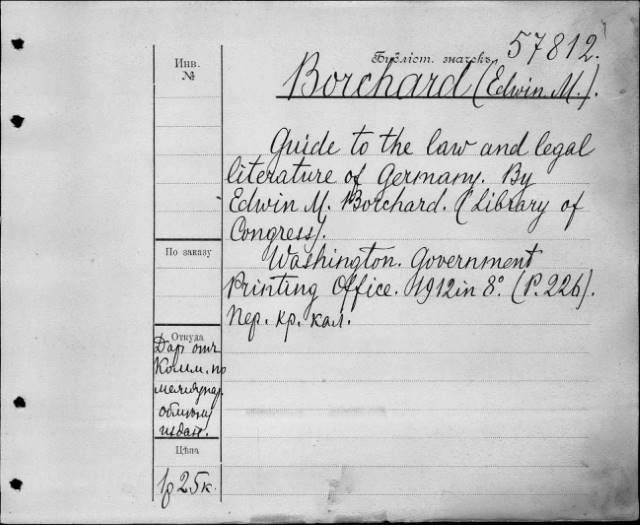 57812.
Инв.
№
Бубліот. значекъ.
Borchard (Edwin M.).
Guide to the law and legal
literature of Germany. By
Edwin M. Borchard. (Library of
Congress).
По заказу
Washington. Government
Printing Office. 1912 in 8°. (P. 226).
Пер. кр. кал.
Откуда
Даръ отъ
Комм. по
междунар.
обмѣну
издан.
Цѣна
1р 25к.